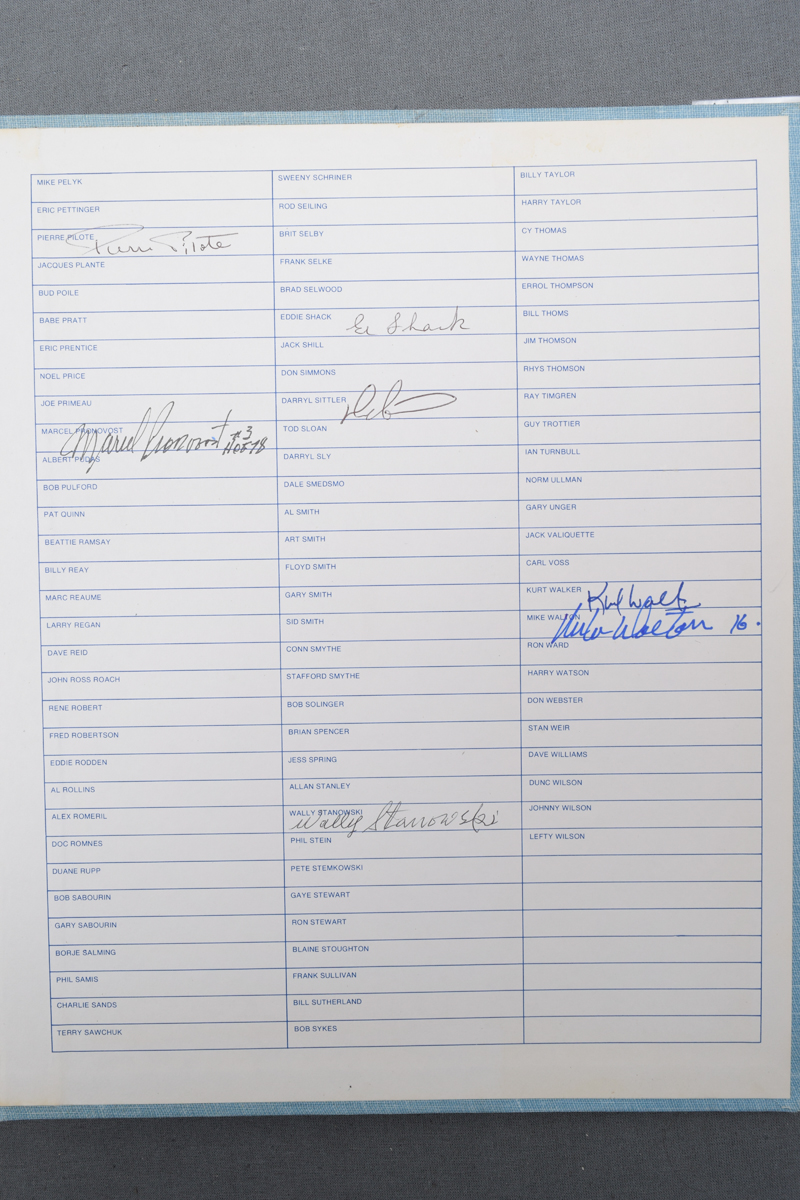 MIKE PELYK
ERIC PETTINGER
PIERRE PILOTE Pierre Pilote
JACQUES PLANTE
BUD POILE
BABE PRATT
ERIC PRENTICE
NOEL PRICE
JOE PRIMEAU
MARCEL PRONOVOST Marcel Pronovost #3 HOF 78
ALBERT PUDAS
BOB PULFORD
PAT QUINN
BEATTIE RAMSAY
BILLY REAY
MARC REAUME
LARRY REGAN
DAVE REID
JOHN ROSS ROACH
RENE ROBERT
FRED ROBERTSON
EDDIE RODDEN
AL ROLLINS
ALEX ROMERIL
DOC ROMNES
DUANE RUPP
BOB SABOURIN
GARY SABOURIN
BORJE SALMING
PHIL SAMIS
CHARLIE SANDS
TERRY SAWCHUK
SWEENY SCHRINER
ROD SEILING
BRIT SELBY
FRANK SELKE
BRAD SELWOOD
EDDIE SHACK Ed Shack
JACK SHILL
DON SIMMONS
DARRYL SITTLER
TOD SLOAN
DARRYL SLY
DALE SMEDSMO
AL SMITH
ART SMITH
FLOYD SMITH
GARY SMITH
SID SMITH
CONN SMYTHE
STAFFORD SMYTHE
BOB SOLINGER
BRIAN SPENCER
JESS SPRING
ALLAN STANLEY
WALLY STANOWSKI Wally Stanowski
PHIL STEIN
PETE STEMKOWSKI
GAYE STEWART
RON STEWART
BLAINE STOUGHTON
FRANK SULLIVAN
BILL SUTHERLAND
BOB SYKES
BILLY TAYLOR
HARRY TAYLOR
CY THOMAS
WAYNE THOMAS
ERROL THOMPSON
BILL THOMS
JIM THOMSON
RHYS THOMSON
RAY TIMGREN
GUY TROTTIER
IAN TURNBULL
NORM ULLMAN
GARY UNGER
JACK VALIQUETTE
CARL VOSS
KURT WALKER Kurt Walker
MIKE WALTON Mike Walton 16.
RON WARD
HARRY WATSON
DON WEBSTER
STAN WEIR
DAVE WILLIAMS
DUNC WILSON
JOHNNY WILSON
LEFTY WILSON